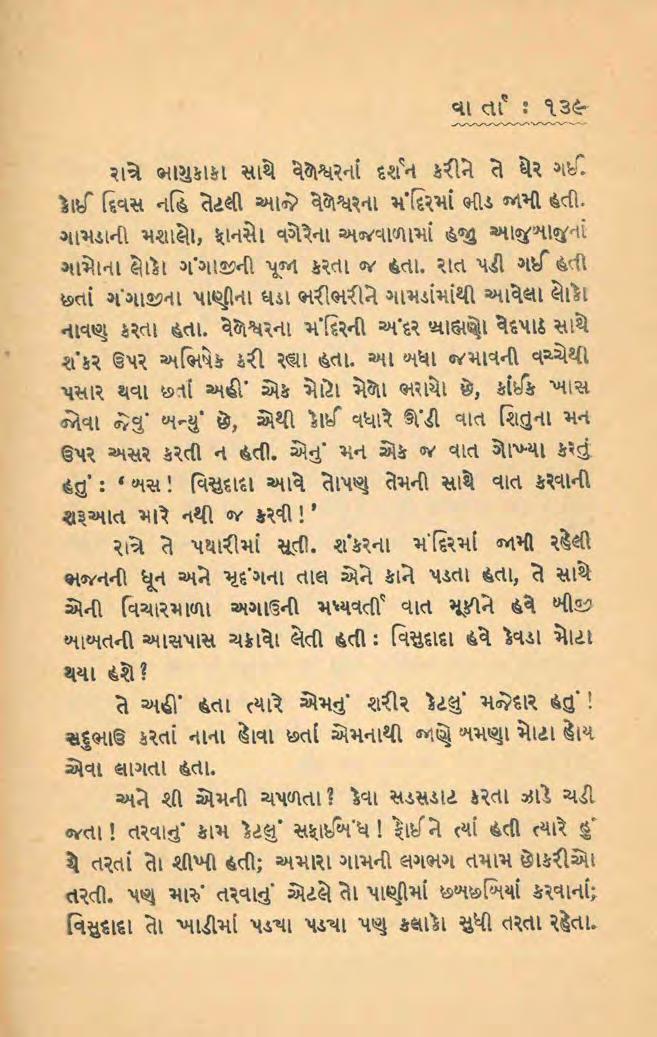 વાર્તા : ૧૩૯
રાત્રે ભાયુકાકા સાથે વેળેશ્વરનાં દર્શન કરીને તે ઘેર ગઈ.
કોઈ દિવસ નહિ તેટલી આજે વેળેશ્વરના મંદિરમાં ભીડ જામી હતી.
ગામડાની મશાલો, ફાનસો વગેરેના અજવાળામાં હજુ આજુબાજુનાં
ગામોના લોકો ગંગાજીની પૂજા કરતા જ હતા. રાત પડી ગઈ હતી
છતાં ગંગાજીના પાણીના ઘડા ભરીભરીને ગામડાંમાંથી આવેલા લોકો
નાવણ કરતા હતા. વેળેશ્વરના મંદિરની અંદર બ્રાહ્મણો વેદપાઠ સાથે
શંકર ઉપર અભિષેક કરી રહ્યા હતા. આ બધા જમાવની વચ્ચેથી
પસાર થવા છતાં અહીં એક મોટો મેળો ભરાયો છે, કાંઈક ખાસ
જોવા જેવું બન્યું છે, એથી કોઈ વધારે ઊંડી વાત શિતુના મન
ઉપર અસર કરતી ન હતી. એનું મન એક જ વાત ગોખ્યા કરતું
હતું : ‘બસ! વિસુદાદા આવે તોપણ તેમની સાથે વાત કરવાની
શરૂઆત મારે નથી જ કરવી!’
રાત્રે તે પથારીમાં સૂતી. શંકરના મંદિરમાં જામી રહેલી
ભજનની ધૂન અને મૃદંગના તાલ એને કાને પડતા હતા, તે સાથે
એની વિચારમાળા અગાઉની મધ્યવર્તી વાત મૂકીને હવે બીજી
બાબતની આસપાસ ચક્રાવો લેતી હતી : વિસુદાદા હવે કેવડા મોટા
થયા હશે?
તે અહીં હતા ત્યારે એમનું શરીર કેટલું મજેદાર હતું!
સદુભાઉ કરતાં નાના હોવા છતાં એમનાથી જાણે બમણા મોટા હોય
એવા લાગતા હતા.
અને શી એમની ચપળતા? કેવા સડસડાટ કરતા ઝાડે ચડી
જતા! તરવાનું કામ કેટલું સફાઈબંધ! ફોઈને ત્યાં હતી ત્યારે હું
યે તરતાં તો શીખી હતી; અમારા ગામની લગભગ તમામ છોકરીઓ
તરતી. પણ મારું તરવાનું એટલે તો પાણીમાં છબછબિયાં કરવાનાં;
વિસુદાદા તો ખાડીમાં પડ્યા પડ્યા પણ કલાકો સુધી તરતા રહેતા.